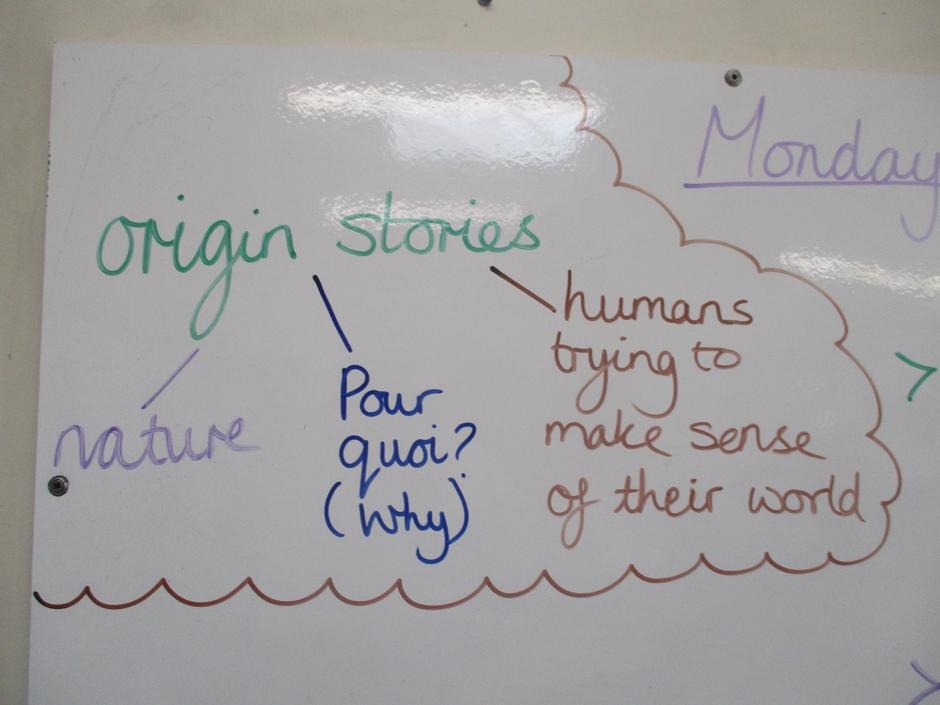 Monday
origin stories
nature
Pour
quoi?
(why)
humans
trying to
make sense
of their world